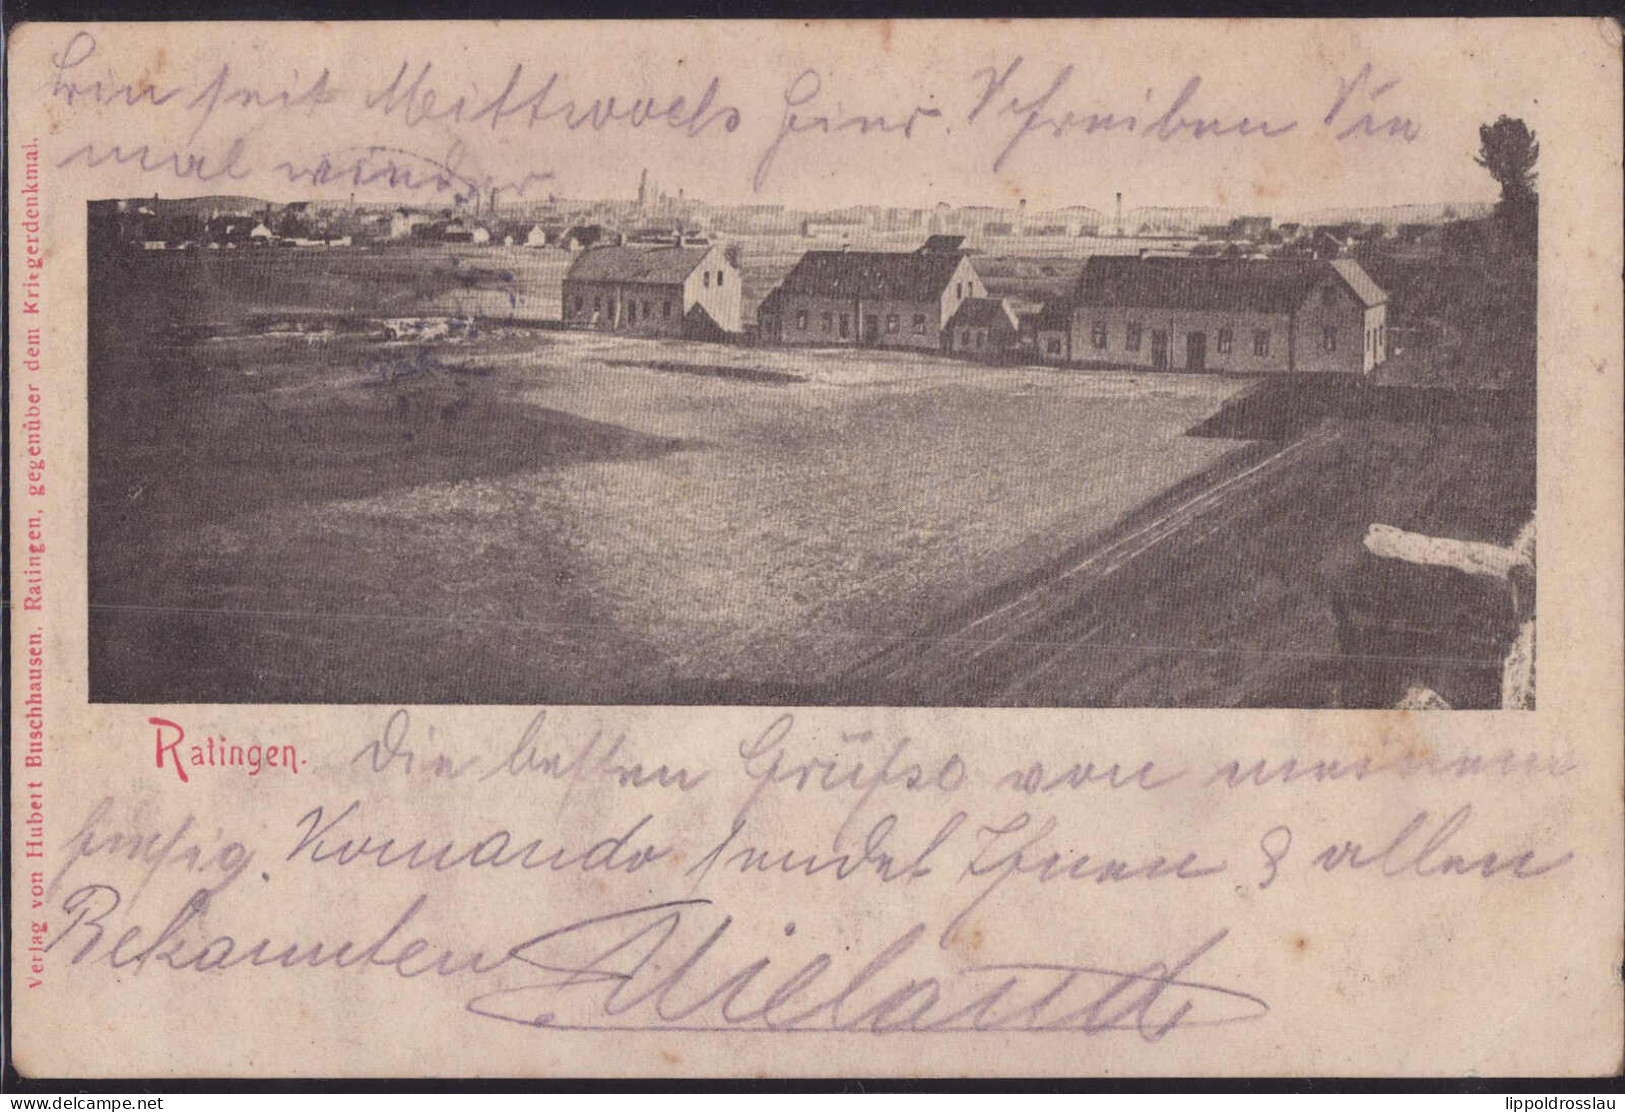 bin seit Mittwoch hier. Schreiben Sie
mal wieder.
Verlag von Hubert Buschhausen, Ratingen, gegenüber dem Kriegerdenkmal.
Ratingen.
Die besten Grüße von meinem
Komando sendet Ihnen & allen
Bekannten Wieland
www.delcampe.net
lippoldrosslau